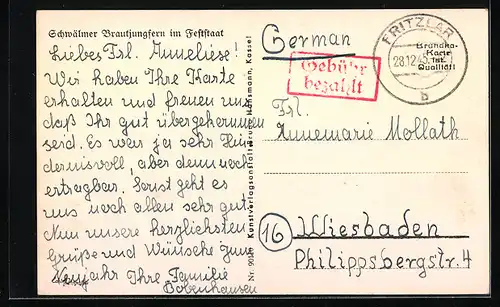 Schwälmer Brautjungfern im Feststaat
Liebes Frl. Anneliese!
Wir haben Ihre Karte
erhalten und freuen uns
daß Ihr gut übergekommen
seid. Es war ja sehr hin
dernisvoll, aber dennoch
ertragbar. Sonst geht es
uns noch allen sehr gut.
Nun unsere herzlichsten
Grüße und Wünsche zum
Neujahr Ihre Familie
Bobenhausen
Kunstverlagsanstalt Bruno Hansmann, Kassel
German
Gebühr
bezahlt
FRITZLAR
28.12.45
b
Karte
ist
Qualität
Frl.
Annemarie Mollath
16 Wiesbaden
Philippsbergstr. 4